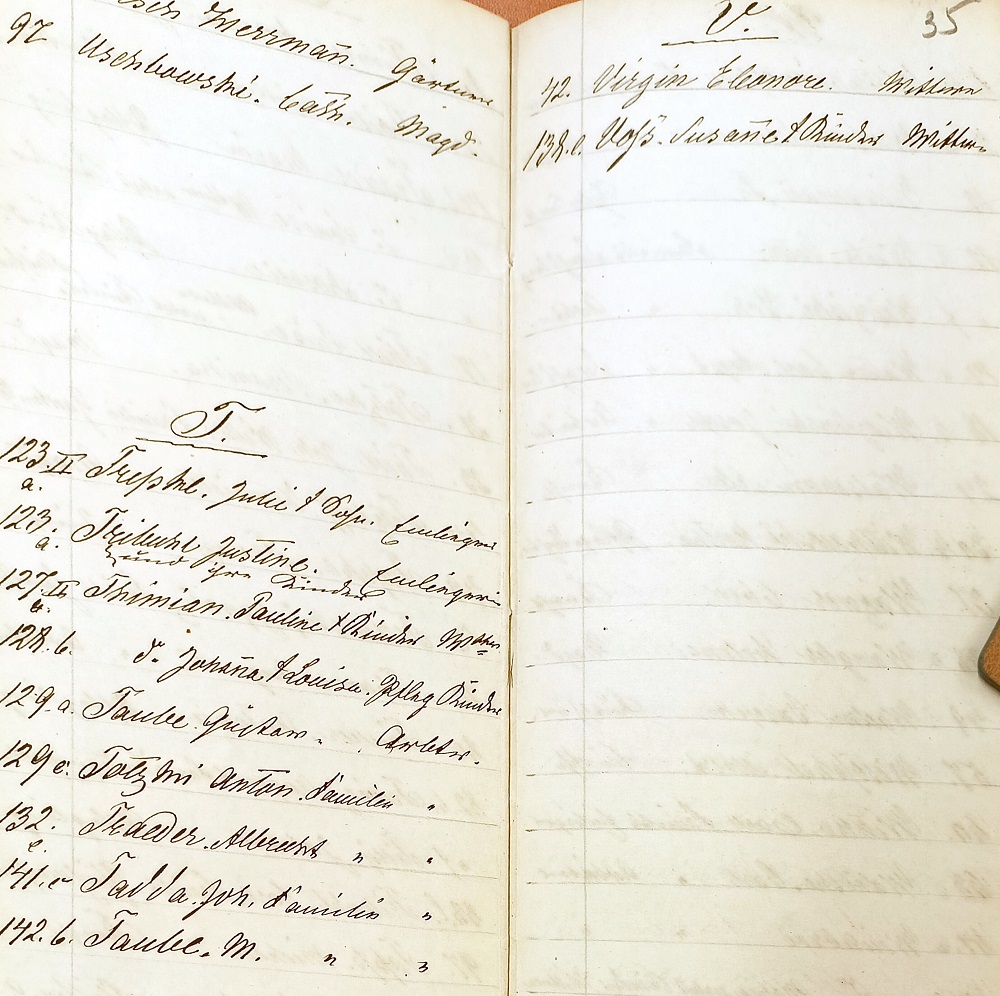 Herrman. Gärtner
97 Uschbowski. Cath. Magd.
T.
123. II a. Julie & Sohn. Einlieger
123. a. Tribuhl Justine. Einliegerin
und ihre Kinder
127. II a. Thimian. Pauline & Kinder Wttwe
128. b. do. Johanna & Louise. Pfleg Kinder
129. a. Taube. Gustav. Arbtr.
129 c. Anton. Familie "
132. c. Traeder. Albrecht " "
141. c Tadda. Joh. Familie "
142. b. Taube. M. " "
V.
35
42. Virgin Eleonore. Wittwe
138. c. Voß. Susanne & Kinder Wittwe